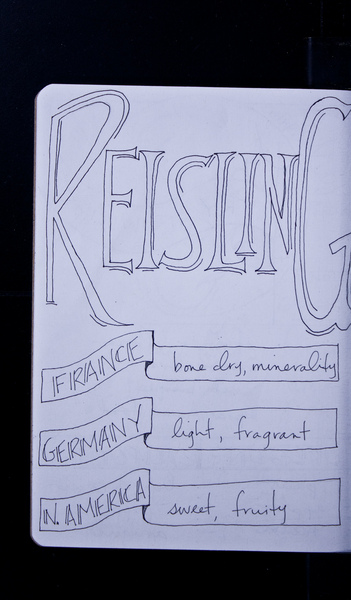 REISLING
FRANCE bone dry, minerality
GERMANY light, fragrant
N. AMERICA sweet, fruity